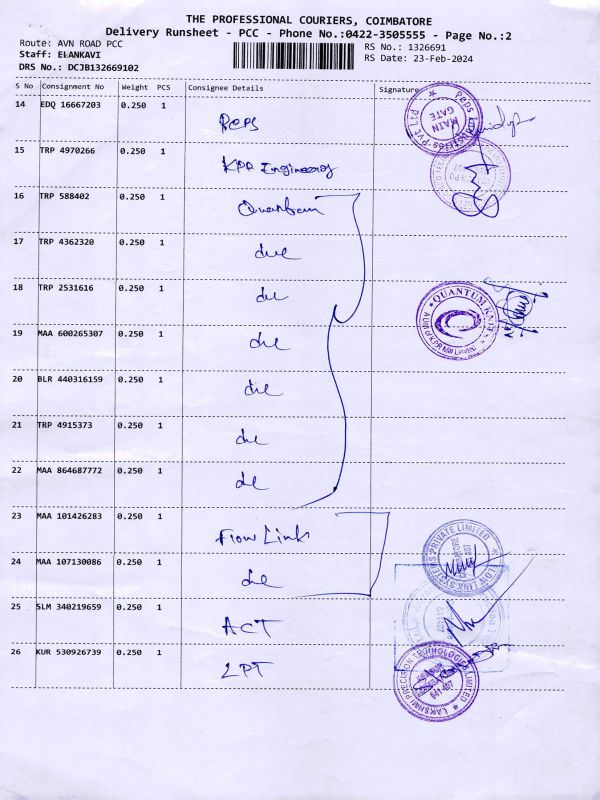 THE PROFESSIONAL COURIERS, COIMBATORE
Delivery Runsheet - PCC - Phone No.:0422-3505555 - Page No.:2
Route: AVN ROAD PCC
RS No.: 1326691
Staff: ELANKAVI
RS Date: 23-Feb-2024
DRS No.: DCJB132669102
S No Consignment No Weight PCS Consignee Details Signature
14 EDQ 16667203 0.250 1 Peps
15 TRP 4970266 0.250 1 KPR Engineering
16 TRP 588402 0.250 1 Quantum
17 TRP 4362320 0.250 1
18 TRP 2531616 0.250 1
19 MAA 600265307 0.250 1
20 BLR 440316159 0.250 1
21 TRP 4915373 0.250 1
22 MAA 864687772 0.250 1
23 MAA 101426283 0.250 1 Flow Link
24 MAA 107130086 0.250 1
25 SLM 340219659 0.250 1 ACT
26 KUR 530926739 0.250 1 LPT
Peps Industries Pvt Ltd
MAIN GATE
QUANTUM KNITS
LAKSHMI PRECISION TECHNOLOGIES LIMITED
641 407